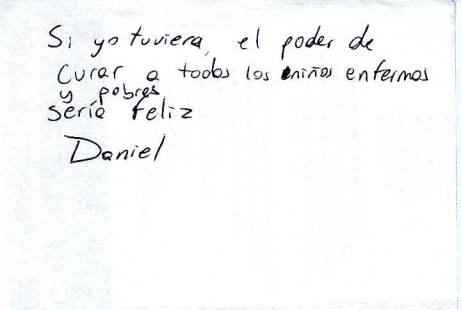 Si yo tuviera, el poder de
Curar a toobs los niños enfermos
y pobres
sería feliz
Daniel